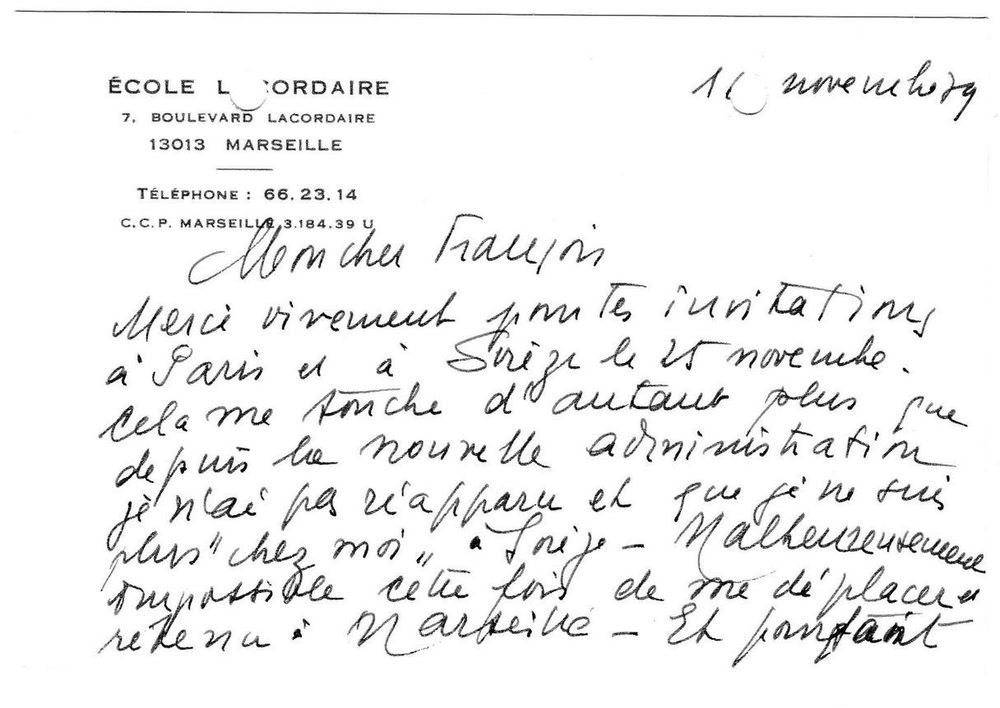 ÉCOLE L CORDAIRE
7, BOULEVARD LACORDAIRE
13013 MARSEILLE
TÉLÉPHONE : 66.23.14
C.C.P. MARSEILLE 3.184.39 U
novembre 79
Mon cher François
Merci vivement pour tes invitations
à Paris et à Sorèze le 25 novembre.
Cela me touche d'autant plus que
depuis la nouvelle administration
je n'ai pas réapparu et que je ne suis
plus "chez moi" à Sorèze - Malheureusement
impossible cette fois de me déplacer et
retenu à Marseille - Et pourtant